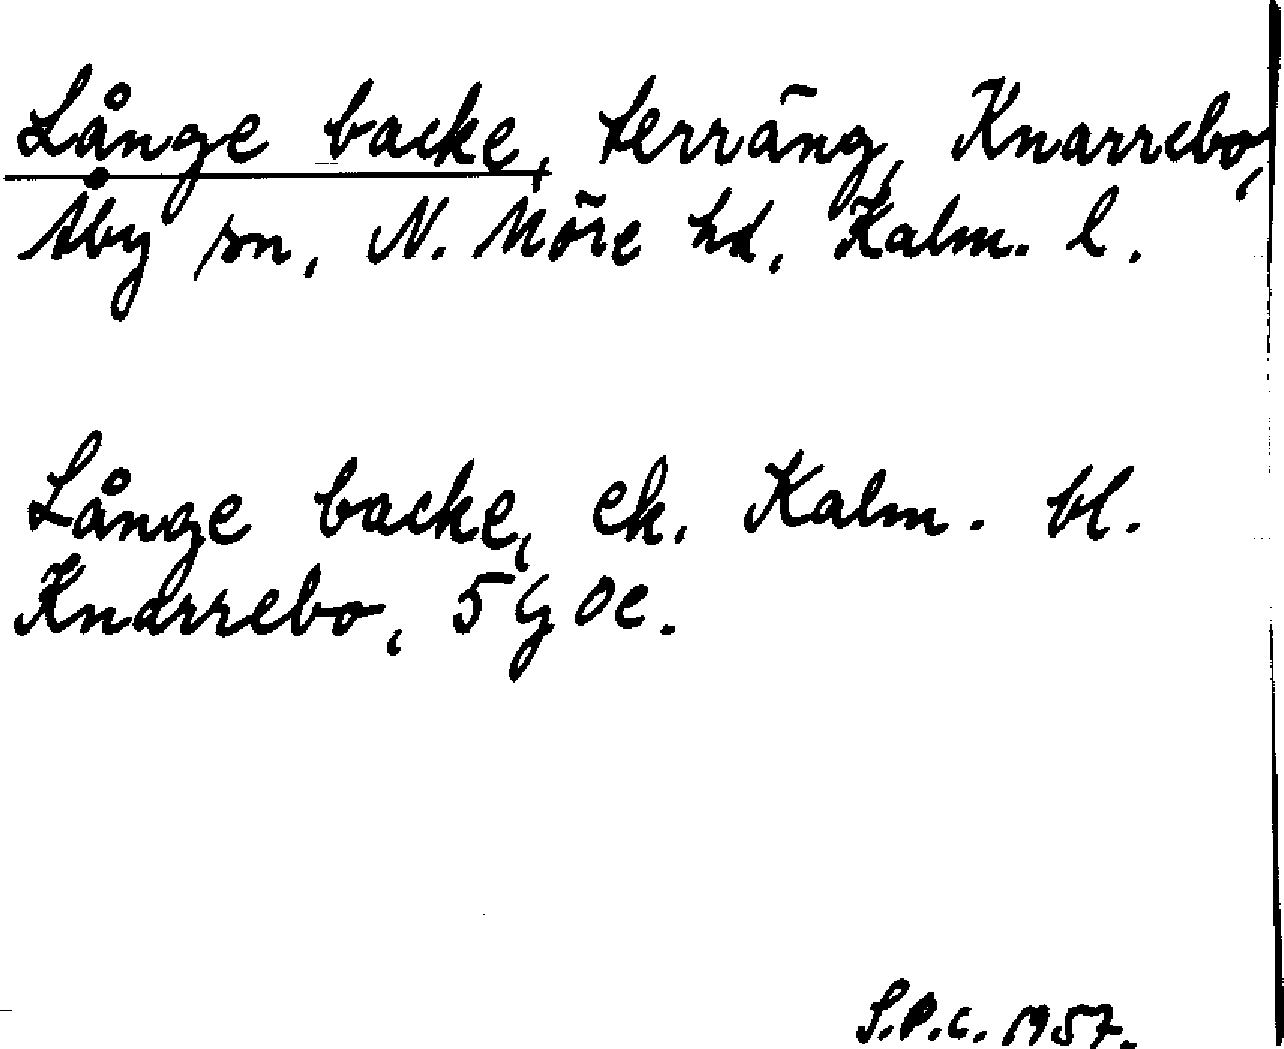 Långe backe, terräng, Knarrebo,
Åby sn, N. Möre hd, Kalm. l.
Långe backe, ek. Kalm. bl.
Knarrebo, 5 G oe.
S.P.C. 1957.